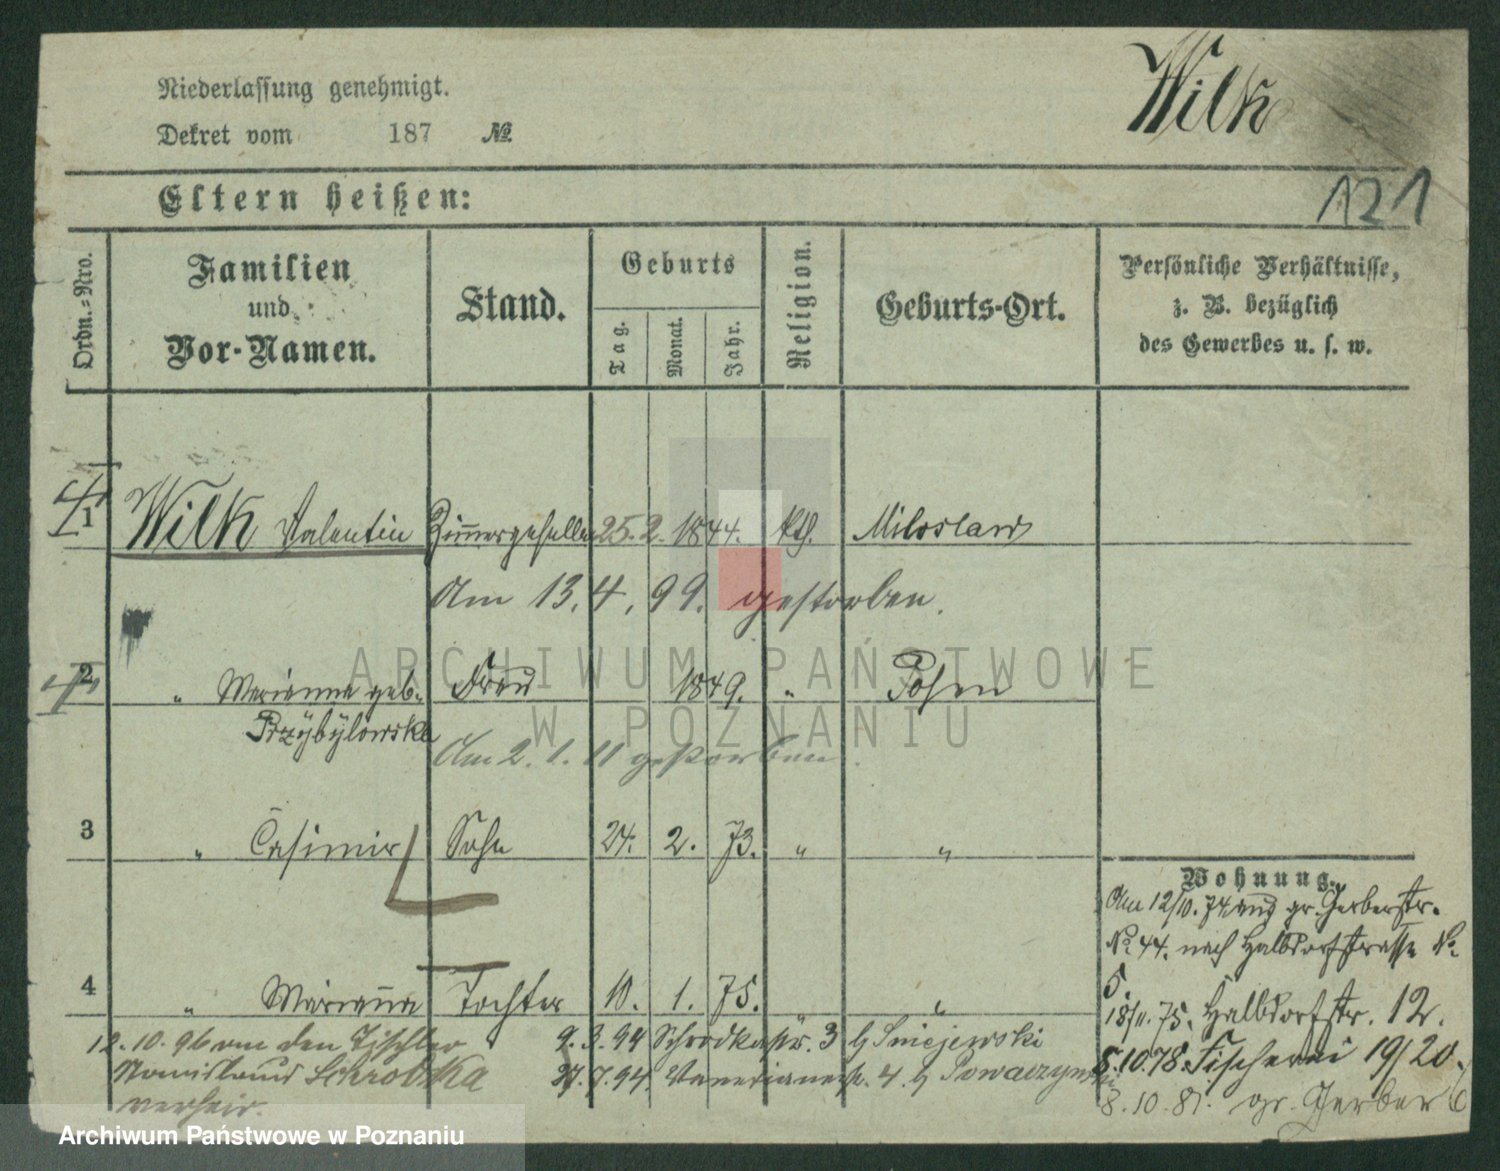 Niederlassung genehmigt.
Wilk
Dekret vom 187 №
Eltern heißen:
121
Ordn.=Nro.
Familien
und
Vor-Namen.
Stand.
Geburts
Tag.
Monat.
Jahr.
Religion.
Geburts-Ort.
Persönliche Verhältnisse,
z. B. bezüglich
des Gewerbes u. s. w.
1 Wilk Valentin Zimmergeselle 25. 2. 1844. kth. Miloslaw
Am 13. 4. 99. gestorben.
2 " Marianna geb. Frau 1849. " Posen
Przybylowska
Am 2. 1. 11 gestorben.
3 " Casimir Sohn 24. 2. 73. " "
4 " Marianna Tochter 10. 1. 75. " "
12. 10. 96 an den Tischler
Stanislaus Schrobka
verheir.
9. 3. 94 Schrodkastr. 3 b/ Sniejewski
27. 7. 94. 4. b/
Wohnung.
Am 12/10. 74 aus gr. Gerberstr.
No 44. nach Halbdorfstrasse No
5.
18/11. 75. Halbdorfstr. 12.
5. 10. 78. Fischerei 19/20.
8. 10. 81. gr. Gerber 6
ARCHIWUM PAŃSTWOWE
W POZNANIU
Archiwum Państwowe w Poznaniu